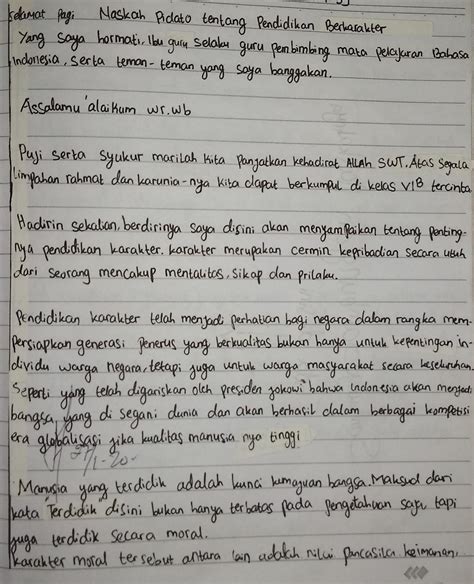 Selamat Pagi Naskah Pidato tentang Pendidikan Berkarakter
Yang saya hormati, Ibu guru selaku guru pembimbing mata pelajaran Bahasa
Indonesia, serta teman-teman yang saya banggakan.
Assalamu'alaikum wr.wb
Puji serta syukur marilah kita panjatkan kehadirat ALLAH SWT. Atas segala
limpahan rahmat dan karunia-nya kita dapat berkumpul di kelas VIB tercinta
Hadirin sekalian, berdirinya saya disini akan menyampaikan tentang penting-
nya pendidikan karakter. karakter merupakan cermin kepribadian secara utuh
dari seorang mencakup mentalitas, sikap dan prilaku.
Pendidikan karakter telah menjadi perhatian bagi negara dalam rangka mem-
persiapkan generasi penerus yang berkualitas bukan hanya untuk kepentingan in-
dividu warga negara, tetapi juga untuk warga masyarakat secara keseluruhan.
Seperti yang telah digariskan oleh presiden jokowi "bahwa Indonesia akan menjadi
bangsa, yang di segani dunia dan akan berhasil dalam berbagai kompetisi
era globalisasi jika kualitas manusia nya tinggi
Manusia yang terdidik adalah kunci kemajuan bangsa. Maksud dari
kata Terdidik disini bukan hanya terbatas pada pengetahuan saja tapi
juga terdidik secara moral.
Karakter moral tersebut antara lain adalah nilai pancasila keimanan,